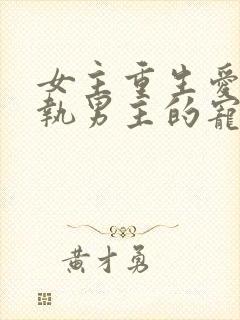 女主重生愛
執男主的寵
黃才勇